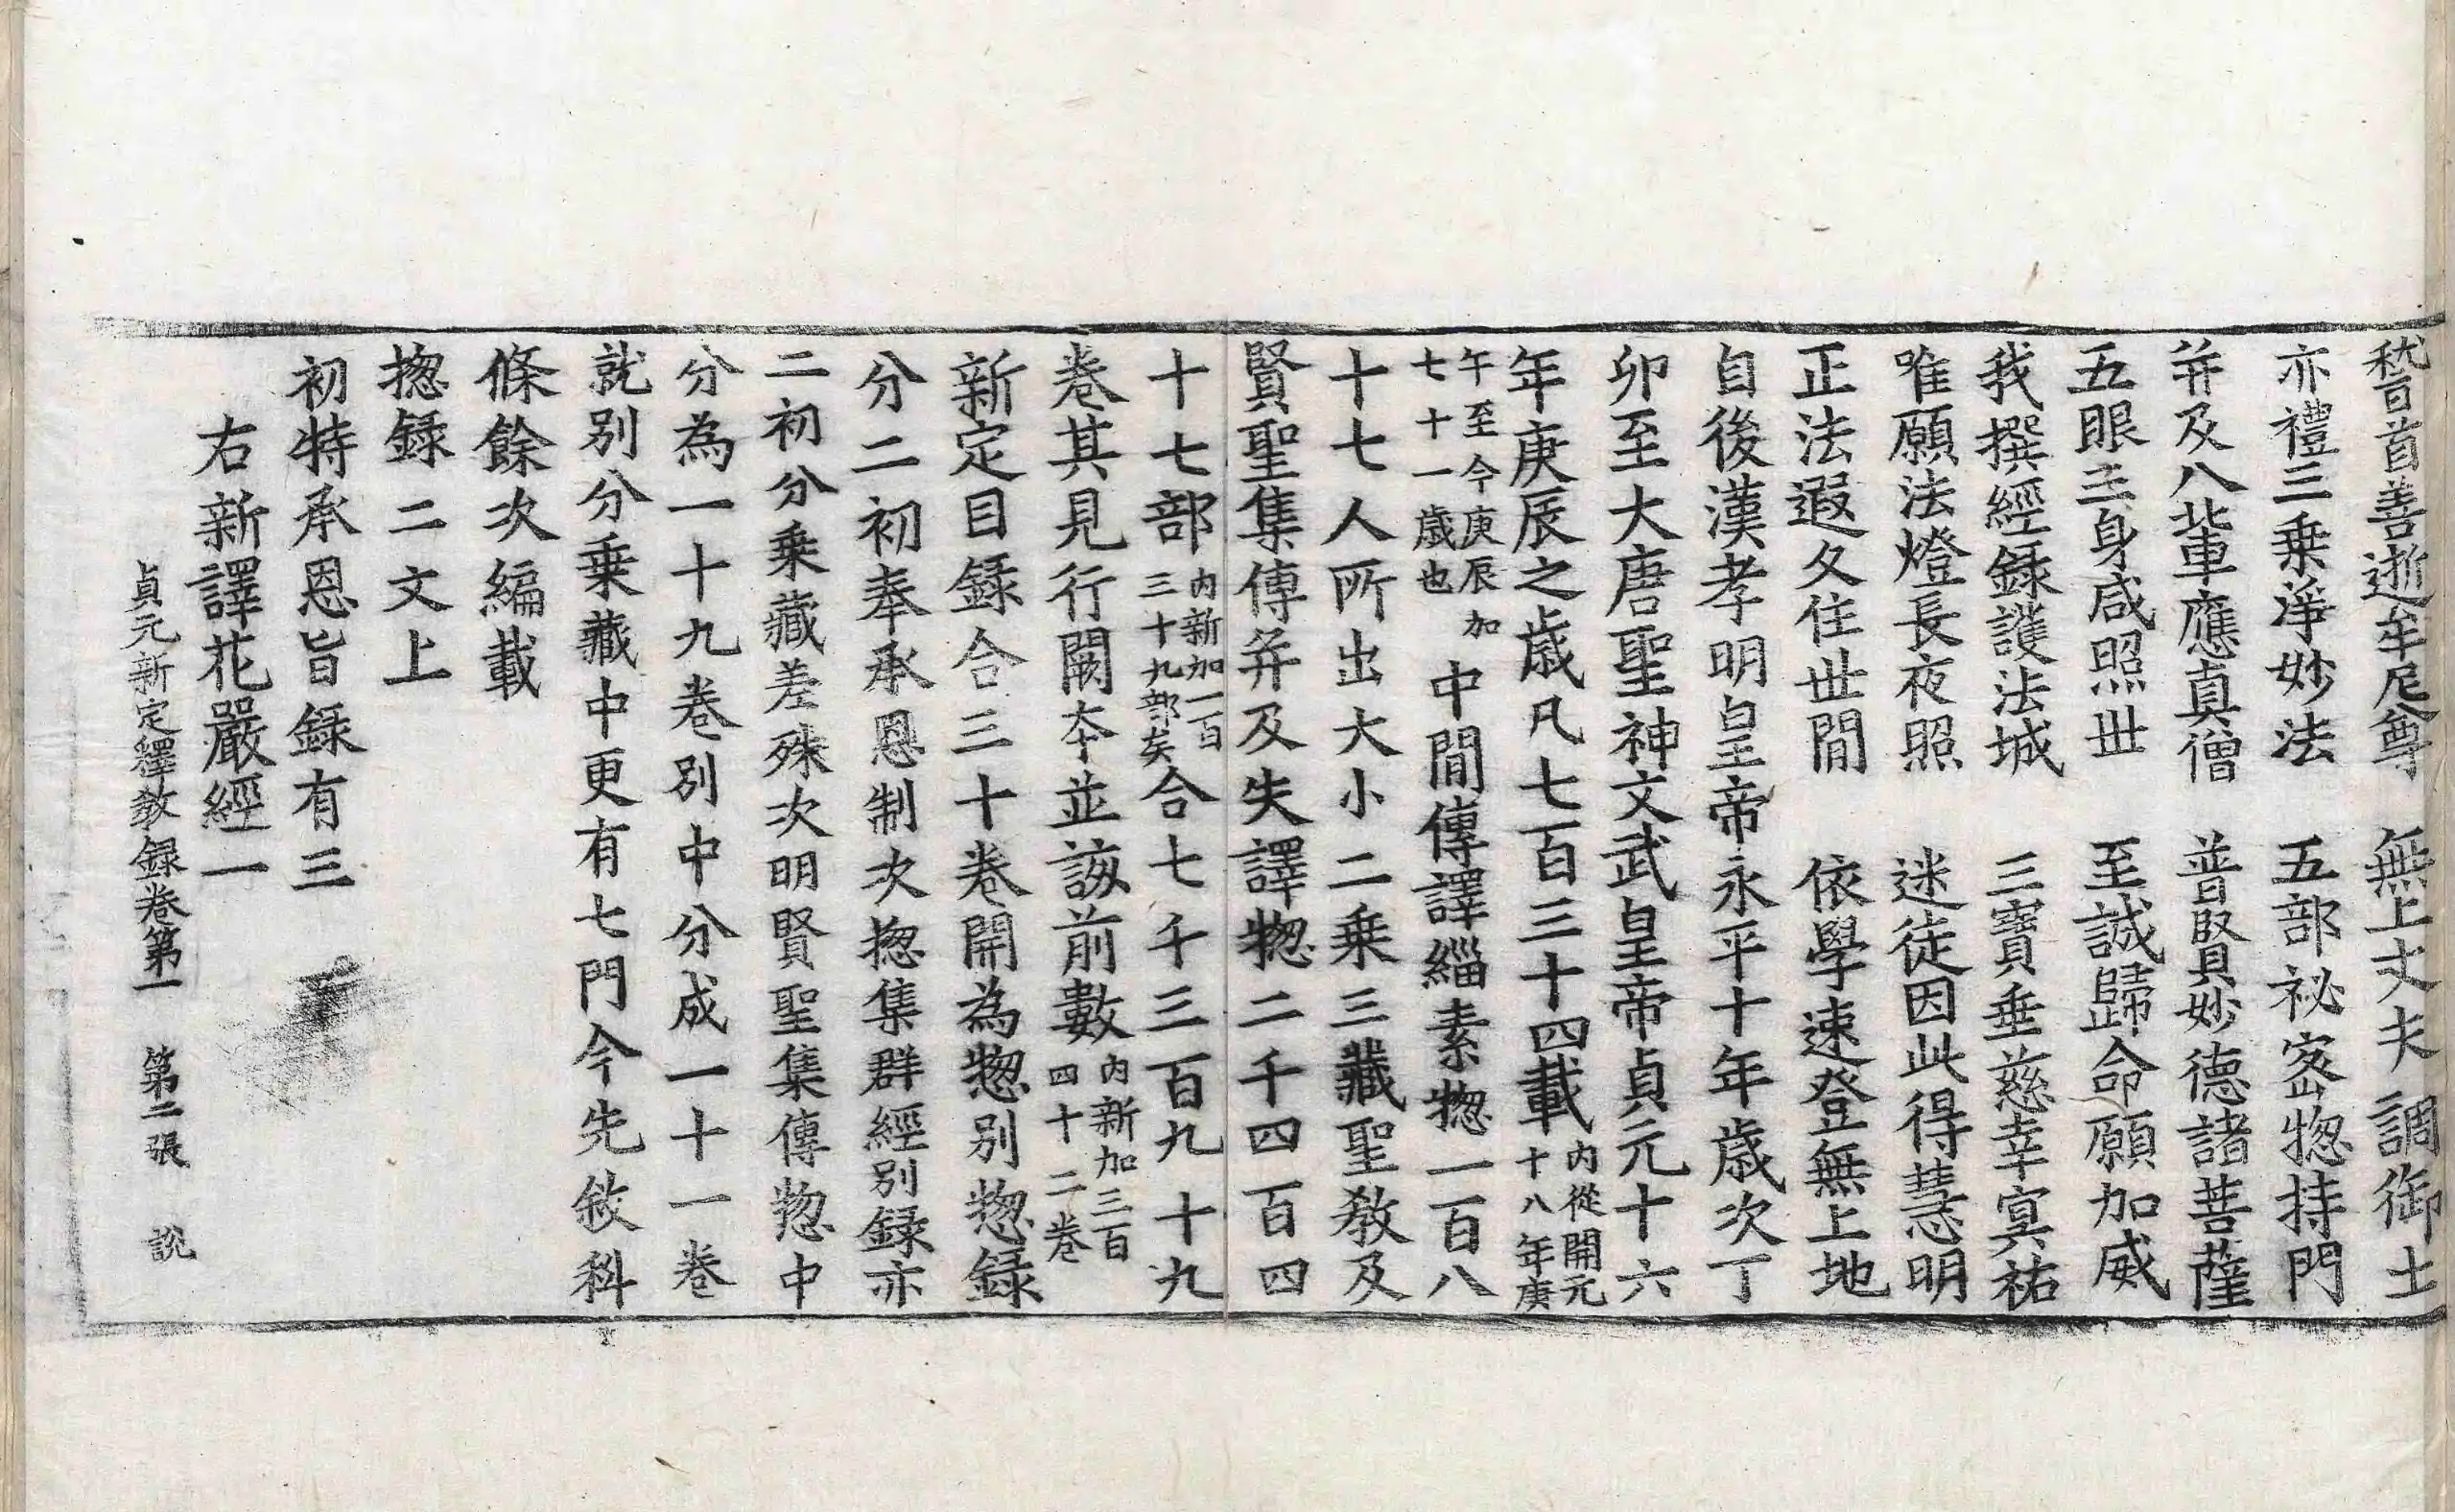 稽首善逝牟尼尊　無上丈夫調御士
亦禮三乗淨妙法　五部祕密惣持門
并及八輩應真僧　普賢妙德諸菩薩
五眼三身咸照世　至誠歸命願加威
我撰經録護法城　三寶垂慈幸冥祐
唯願法燈長夜照　迷徒因此得慧明
正法遐久住世間　依學速登無上地
自後漢孝明皇帝永平十年歲次丁
卯至大唐聖神文武皇帝貞元十六
年庚辰之歲凡七百三十四載内從開元十八年庚
午至今庚辰加七十一歲也中間傳譯緇素惣一百八
十七人所出大小二乗三藏聖教及
賢聖集傳并及失譯惣二千四百四
十七部内新加一百三十九部矣合七千三百九十九
卷其見行闕本並該前數内新加三百四十二卷
新定目録合三十卷開為惣別惣録
分二初奉承恩制次揔集群經別録亦
二初分乗藏差殊次明賢聖集傳惣中
分為一十九卷別中分成一十一卷
就別分乗藏中更有七門今先敘科
條餘次編載
揔録二文上
初特承恩旨録有三
右新譯花嚴經一
貞元新定釋教録卷第一　第二張　說